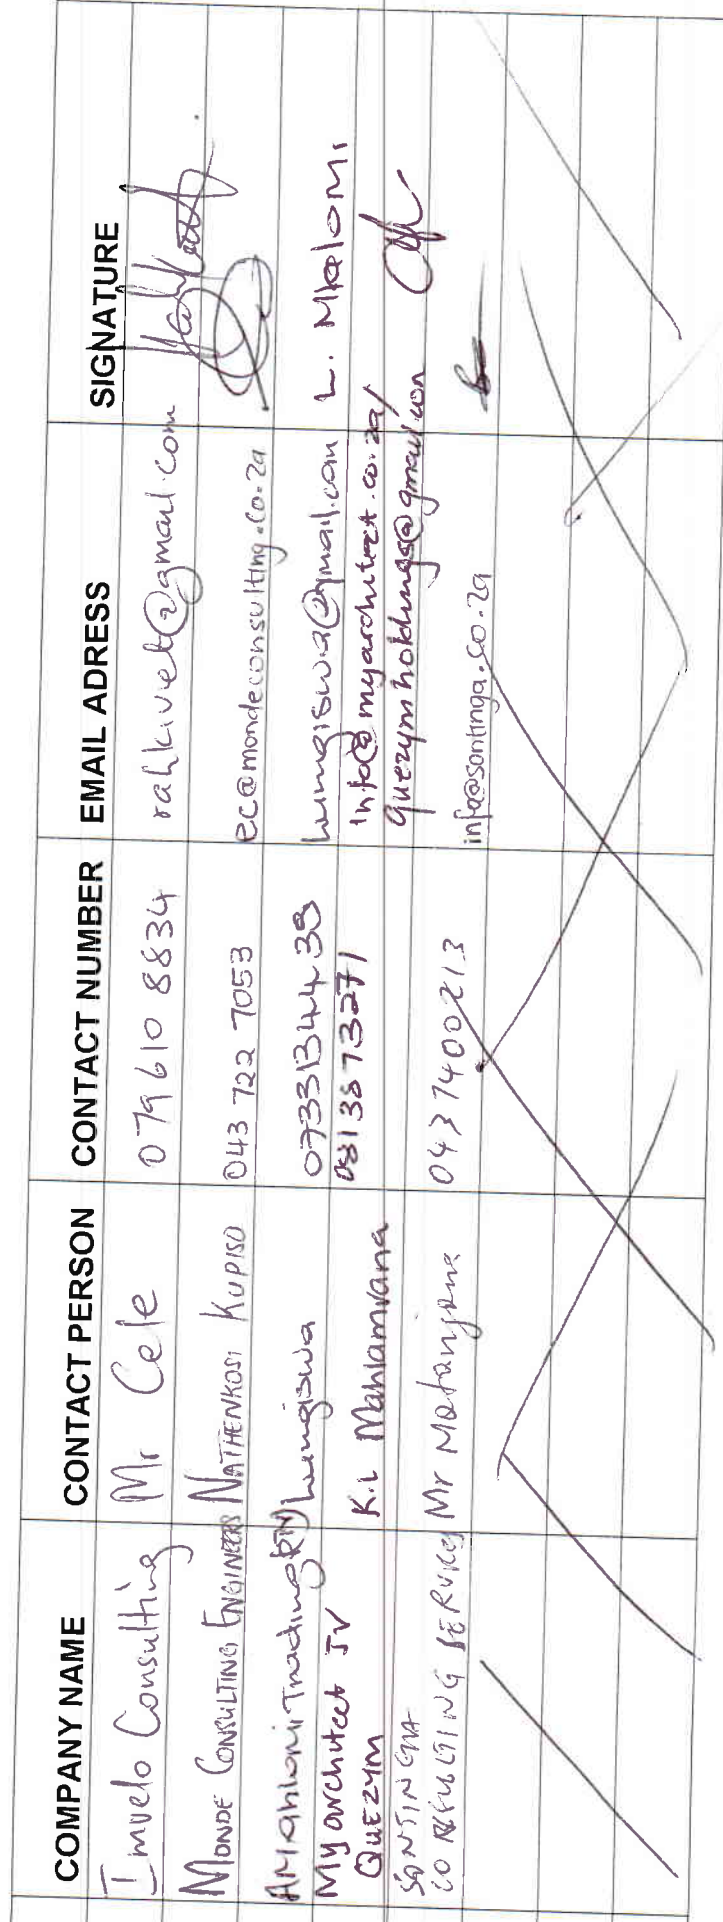 COMPANY NAME CONTACT PERSON CONTACT NUMBER EMAIL ADRESS SIGNATURE
Imvelo Consulting Mr Cele 079 610 8834 rahkivet@gmail.com
MONDE CONSULTING ENGINEERS NATHENKOSI KUPISO 043 722 7053 ec@mondeconsulting.co.za
Trading Lungiswa 0733134438 lungiswa@gmail.com L. Mkalomi
My architect JV 081 387 3271 info@myarchitect.co.za/
QUEZYM K.L Mahlamvana quezymholdings@gmail.com
SONTINGA
CONSULTING SERVICES Mr Matanjana 043 7400213 info@sontinga.co.za